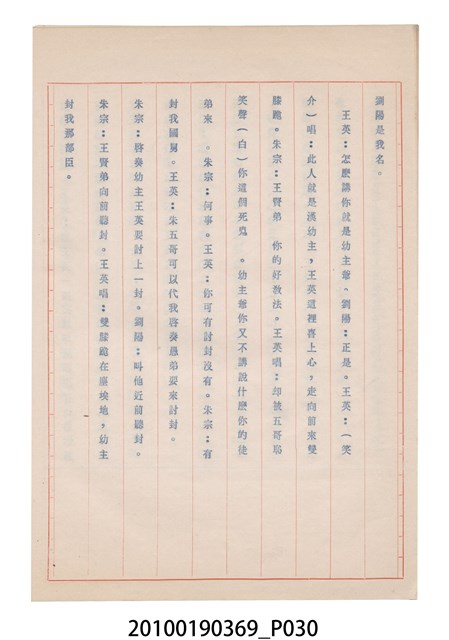 劉陽是我名。
王英：怎麼講你就是幼主爺、劉陽：正是。王英：（笑
介）唱：此人就是漢幼主，王英這裡喜上心，走向前來雙
膝跪。朱宗：王賢弟　你的好教法。王英唱：却被五哥恥
笑聲（白）你這個死鬼　。幼主爺你又不講說什麽你的徒
弟來　。朱宗：何事。王英：你可有討封沒有。朱宗：有
封我國舅。王英：朱五哥可以代我啓奏愚弟要來討封。
朱宗：啓奏幼主王英要討上一封。劉陽：叫他近前聽封。
朱宗：王賢弟向前聽封。王英唱：雙膝跪在塵埃地，幼主
封我那部臣。
20100190369_P030